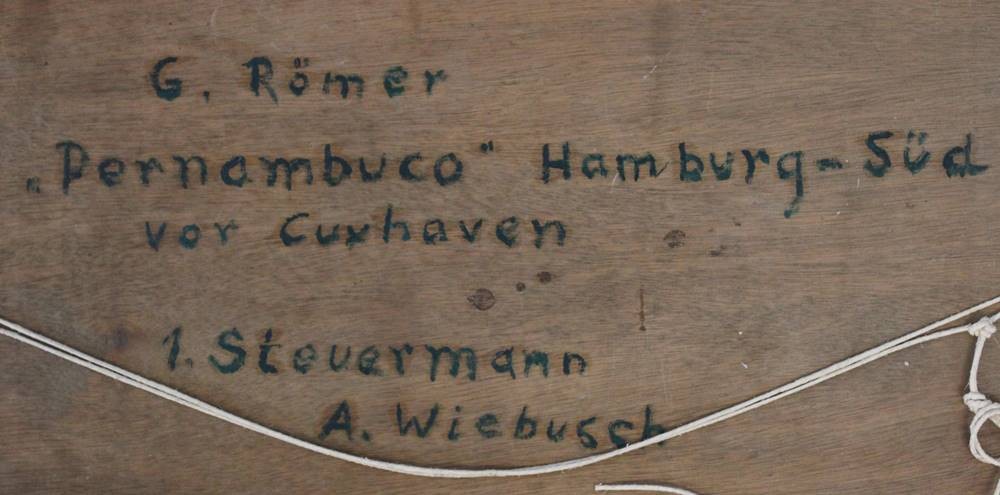 G. Römer
„Pernambuco" Hamburg-Süd
vor Cuxhaven
1. Steuermann
A. Wiebusch